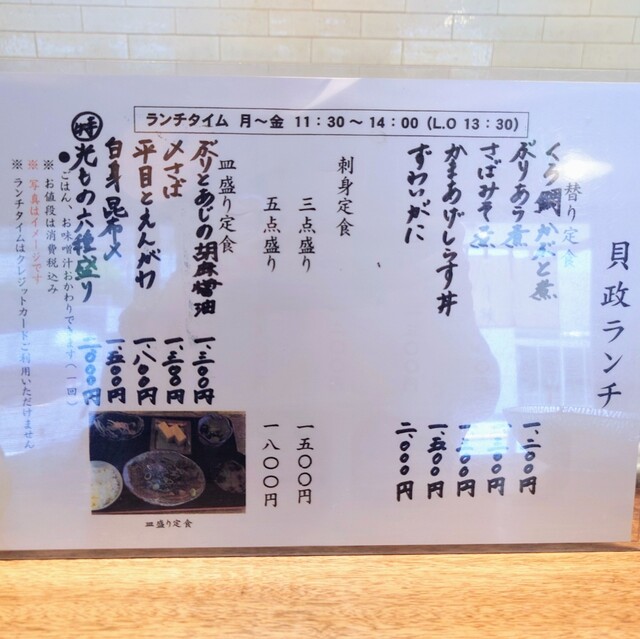 ランチタイム 月〜金 11:30〜14:00(L.O 13:30)
貝政ランチ
替り定食
くろ鯛かぶと煮 一、二〇〇円
ぶりあら煮
さばみそ煮
かまあげしらす丼 一、五〇〇円
ずわいがに 二、〇〇〇円
刺身定食
三点盛り 一五〇〇円
五点盛り 一八〇〇円
皿盛り定食
ぶりとあじの胡麻醤油 一、三〇〇円
〆さば 一、三〇〇円
平目とえんがわ 一、八〇〇円
白身昆布〆 一、五〇〇円
光もの六種盛り 二、〇〇〇円
●ごはん、お味噌汁おかわりできます(一回)
※ お値段は消費税込み
※ 写真はイメージです
※ ランチタイムはクレジットカードご利用いただけません
皿盛り定食